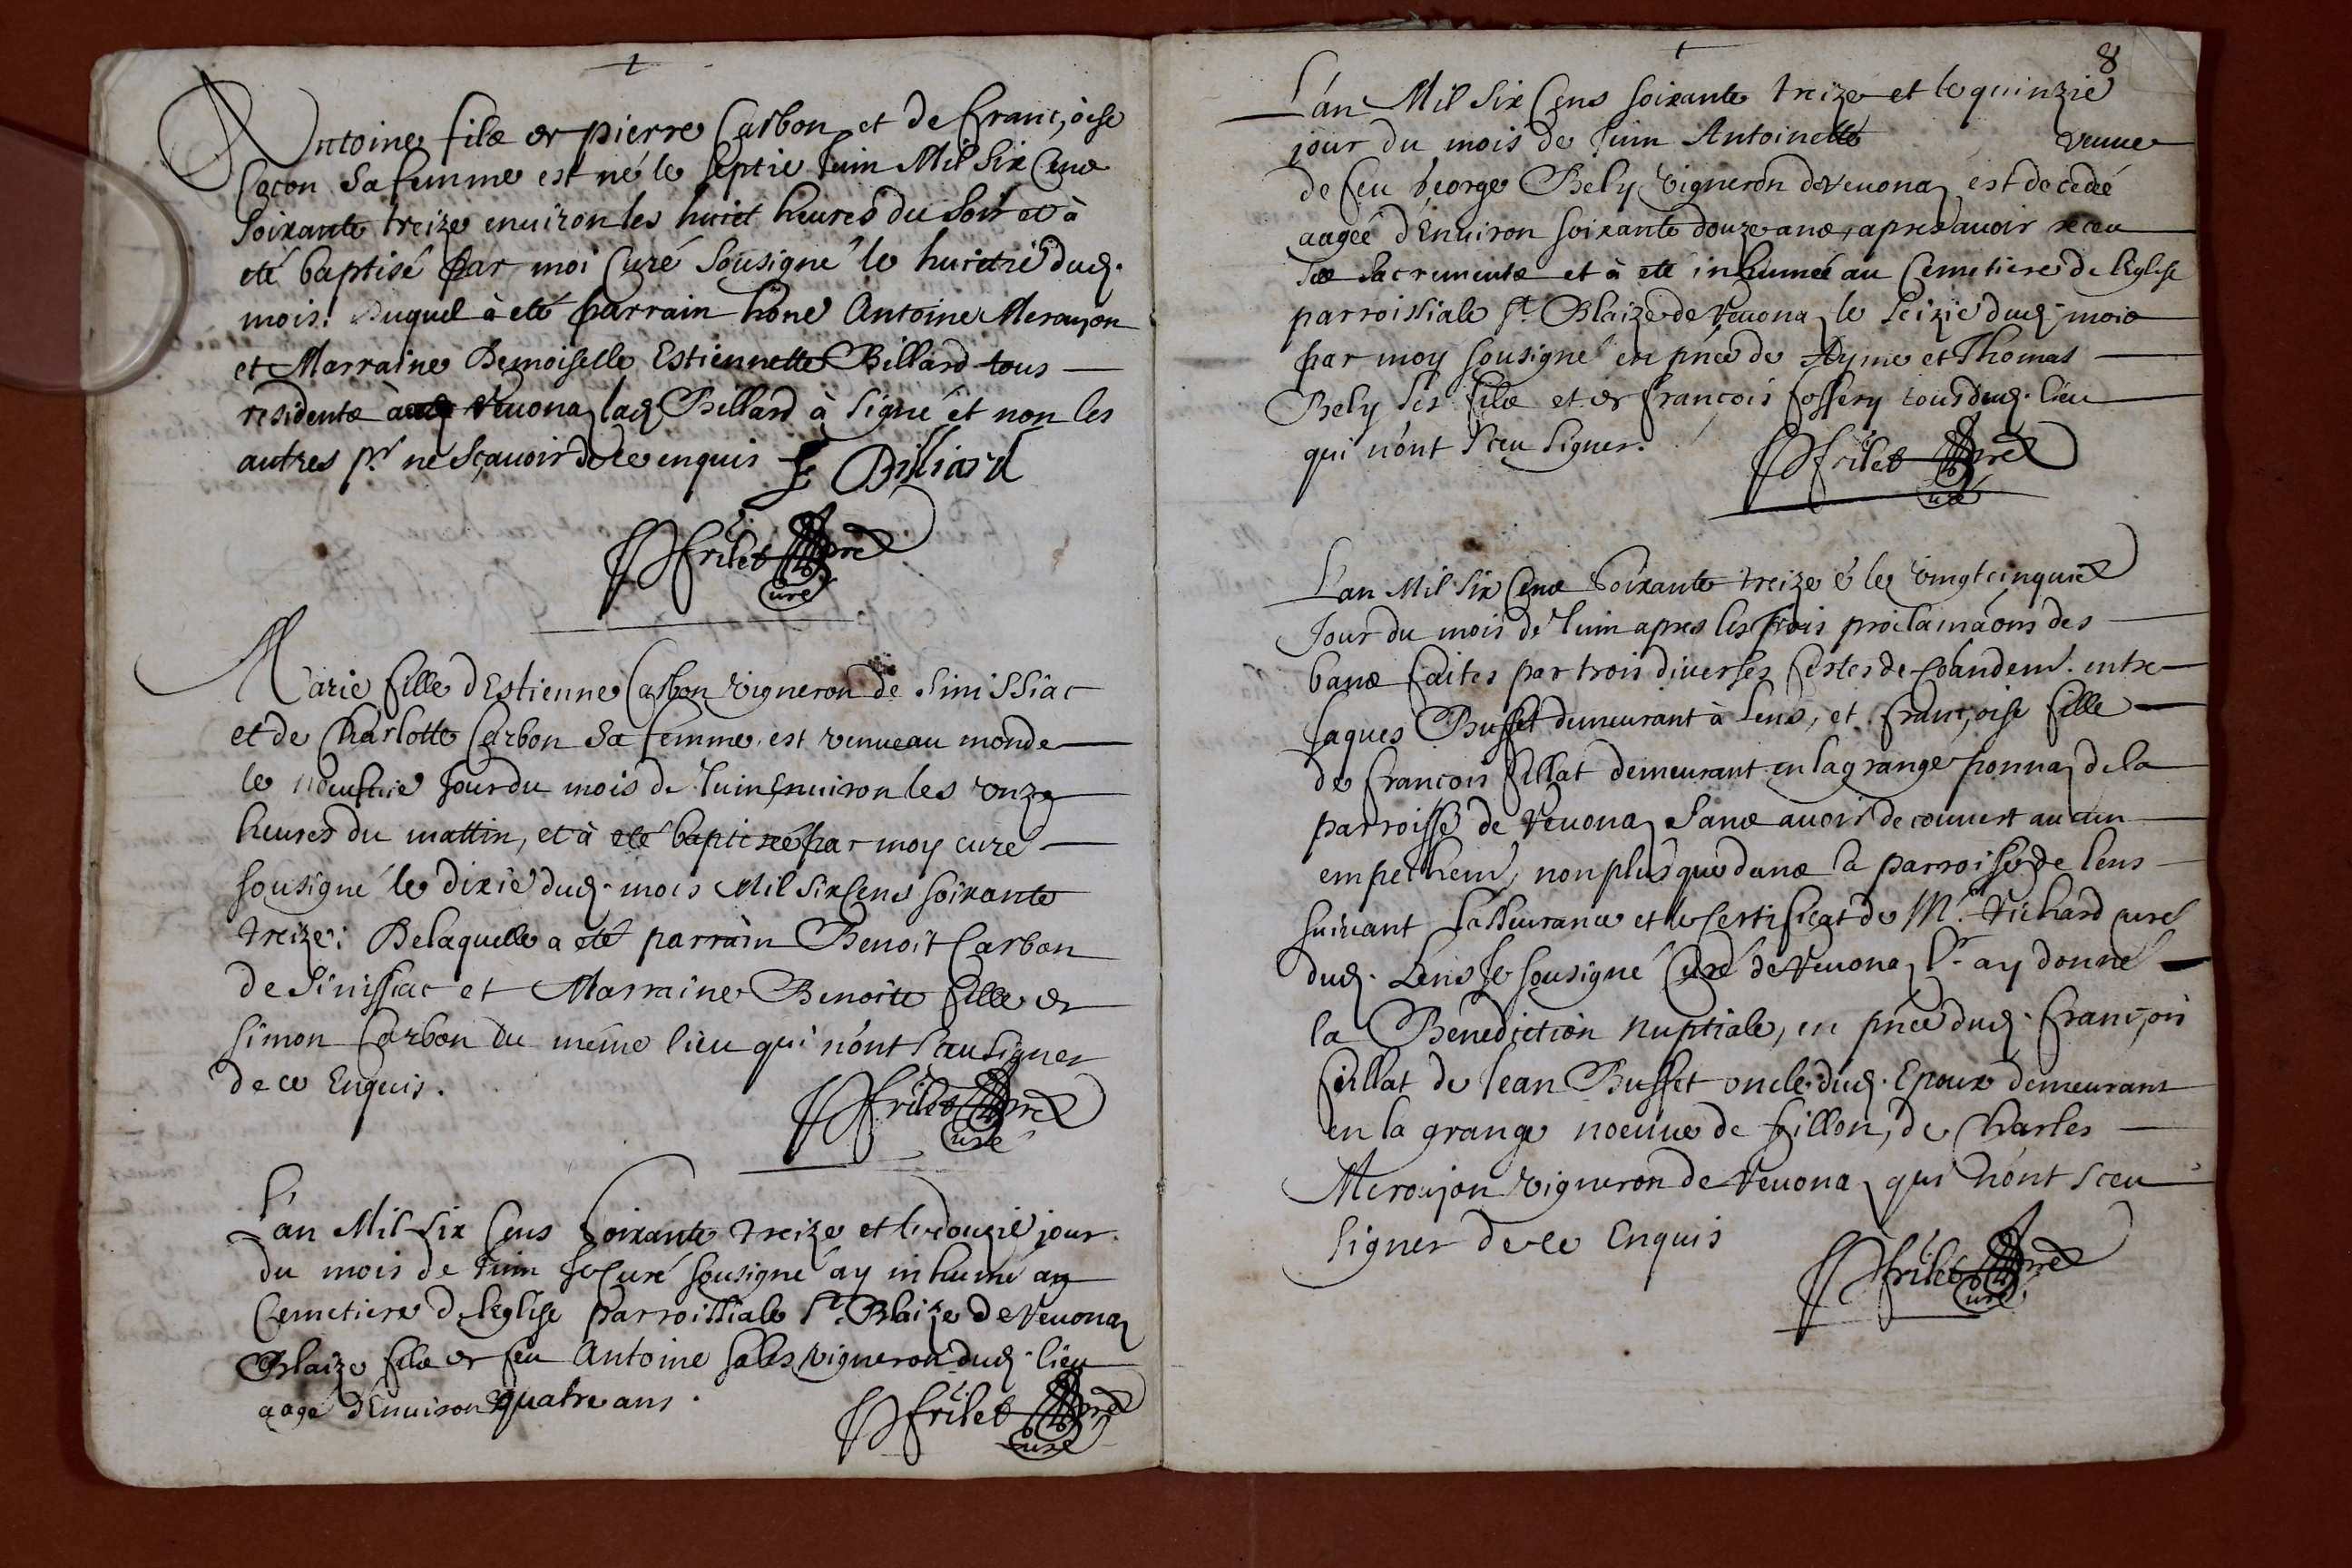 Antoine fils de pierre Carbon et de Françoise
Cocon Sa femme est né le septie Juin Mil Six Cens
Soixante treize enuiron les huict heures du Soir et à
eté baptisé par moi Curé Sousigné le huictie dud.
mois. Duquel à eté parrain hone Antoine Meraujon
et Marraine Demoiselle Estiennette Billard tous
residents à Veuona, lad. Billard à signé et non les
autres pr ne sçauoir de ce enquis E Billiard
frilet pre
Curé
Marie fille d'Estienne Carbon Vigneron de Simissiac
et de Charlotte Carbon Sa femme, est venue au monde
le neufuie Jour du mois de Juin enuiron les onze
heures du mattin, et à eté baptisée par moy curé
sousigné le dixie dud. mois Mil Six Cens soixante
treize. De laquelle a eté parrain Benoit Carbon
de Sinissiac et Marraine Benoite fille de
Simon Carbon du meme lieu qui n'ont sceu signer
de ce Enquis.
frilet pre
Curé
L'an Mil Six Cens Soixante treize et le douzie jour
du mois de Juin Je Curé sousigné ay inhumé au
Cemetiere de l'Eglise Parroissiale St. Blaize de Veuona
Blaize fils de feu Antoine Sales vigneron dud. lieu
aagé d'Enuiron quatre ans.
frilet pre
Curé
8
L'an Mil Six Cens soixante treize et le quinzie
jour du mois de Juin Antoinette veuue
de feu George Bely Vigneron de Veuona est decedeé
aagée d'Enuiron soixante douze ans, apres auoir receu
ses Sacrements et à eté inhumée au Cemetiere de l'Eglise
parroissiale St. Blaize de Veuona le seizie dud. mois
par moy sousigné en pnce de Ayme et Thomas
Bely ses fils et de françois fossery tous dud. lieu
qui n'ont sceu signer.
frilet pre
Curé
L'an Mil Six Cens Soixante treize & le vingt cinquie
Jour du mois de Juin apres les trois proclamaons des
bans faites par trois diuerses festes de Coandem. entre
Jaques Buffet demeurant à Lens, et françoise fille
de françois fillat demeurant en la grange ponna de la
parroisse de Veuona, Sans auoir decouuert aucun
empechem, non plus que dans la parroisse de Lens
suiuant l'asseurance et le Certificat de Mr. Vichard curé
dud. Lens Je sousigné Curé de Veuona, lr. ay donné
la Benediction Nuptiale, en pnce dud. françois
fillat de Jean Buffet oncle dud. Epoux demeurant
en la grange noeuue de fillon, de Charles
Meraujon vigneron de Veuona, qui n'ont sceu
signer de ce Enquis
frilet pre
Curé